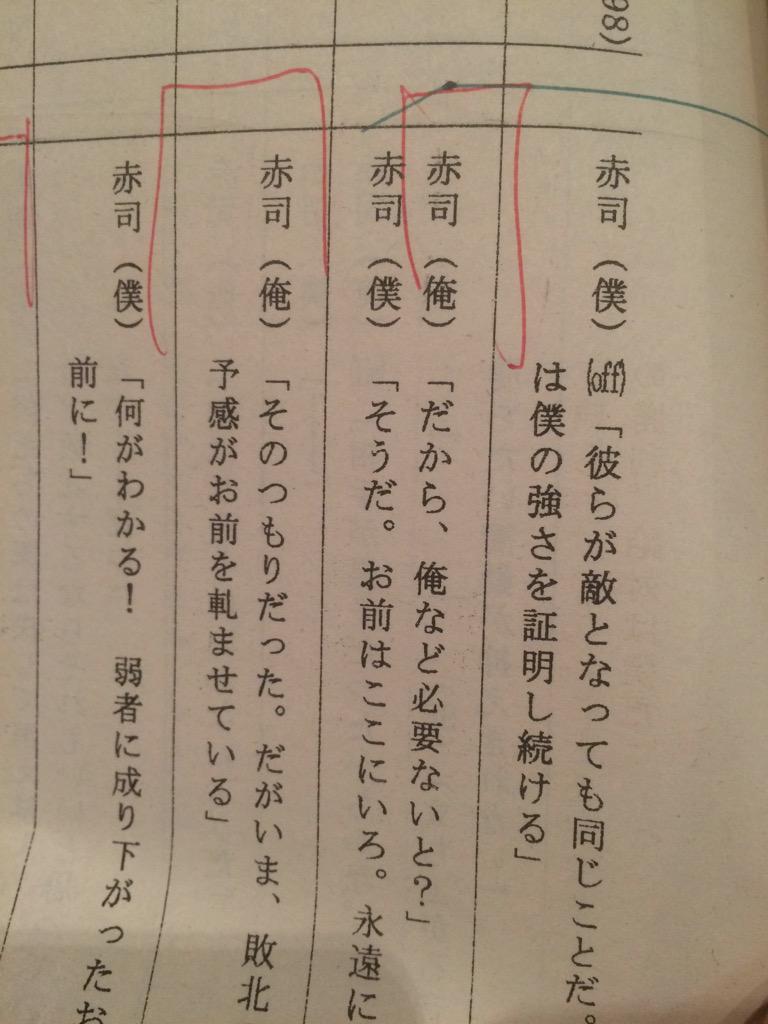 98)
赤司（僕）(off)「彼らが敵となっても同じことだ。
は僕の強さを証明し続ける」
赤司（俺）「だから、俺など必要ないと？」
赤司（僕）「そうだ。お前はここにいろ。永遠に
赤司（俺）「そのつもりだった。だがいま、敗北
予感がお前を軋ませている」
赤司（僕）「何がわかる！　弱者に成り下がったお
前に！」